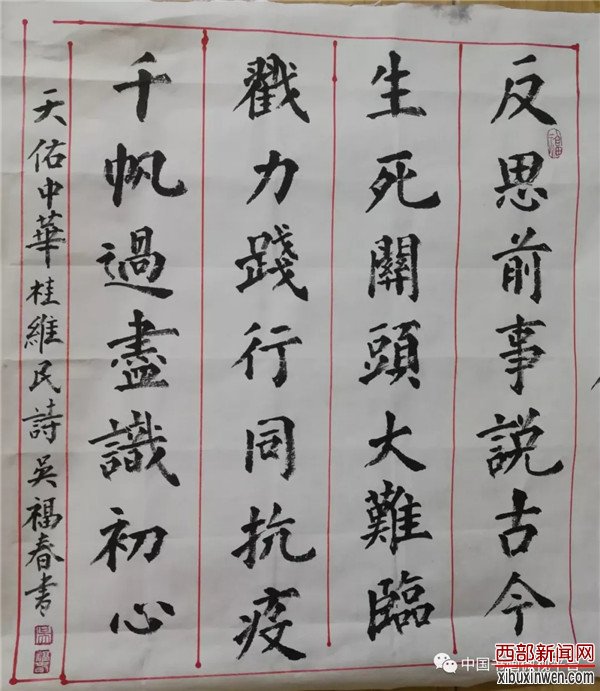 反思前事説古今
生死關頭大難臨
戮力踐行同抗疫
千帆過盡識初心
天佑中華桂維民詩吳福春書
西部新闻网
xibuxinwen.com